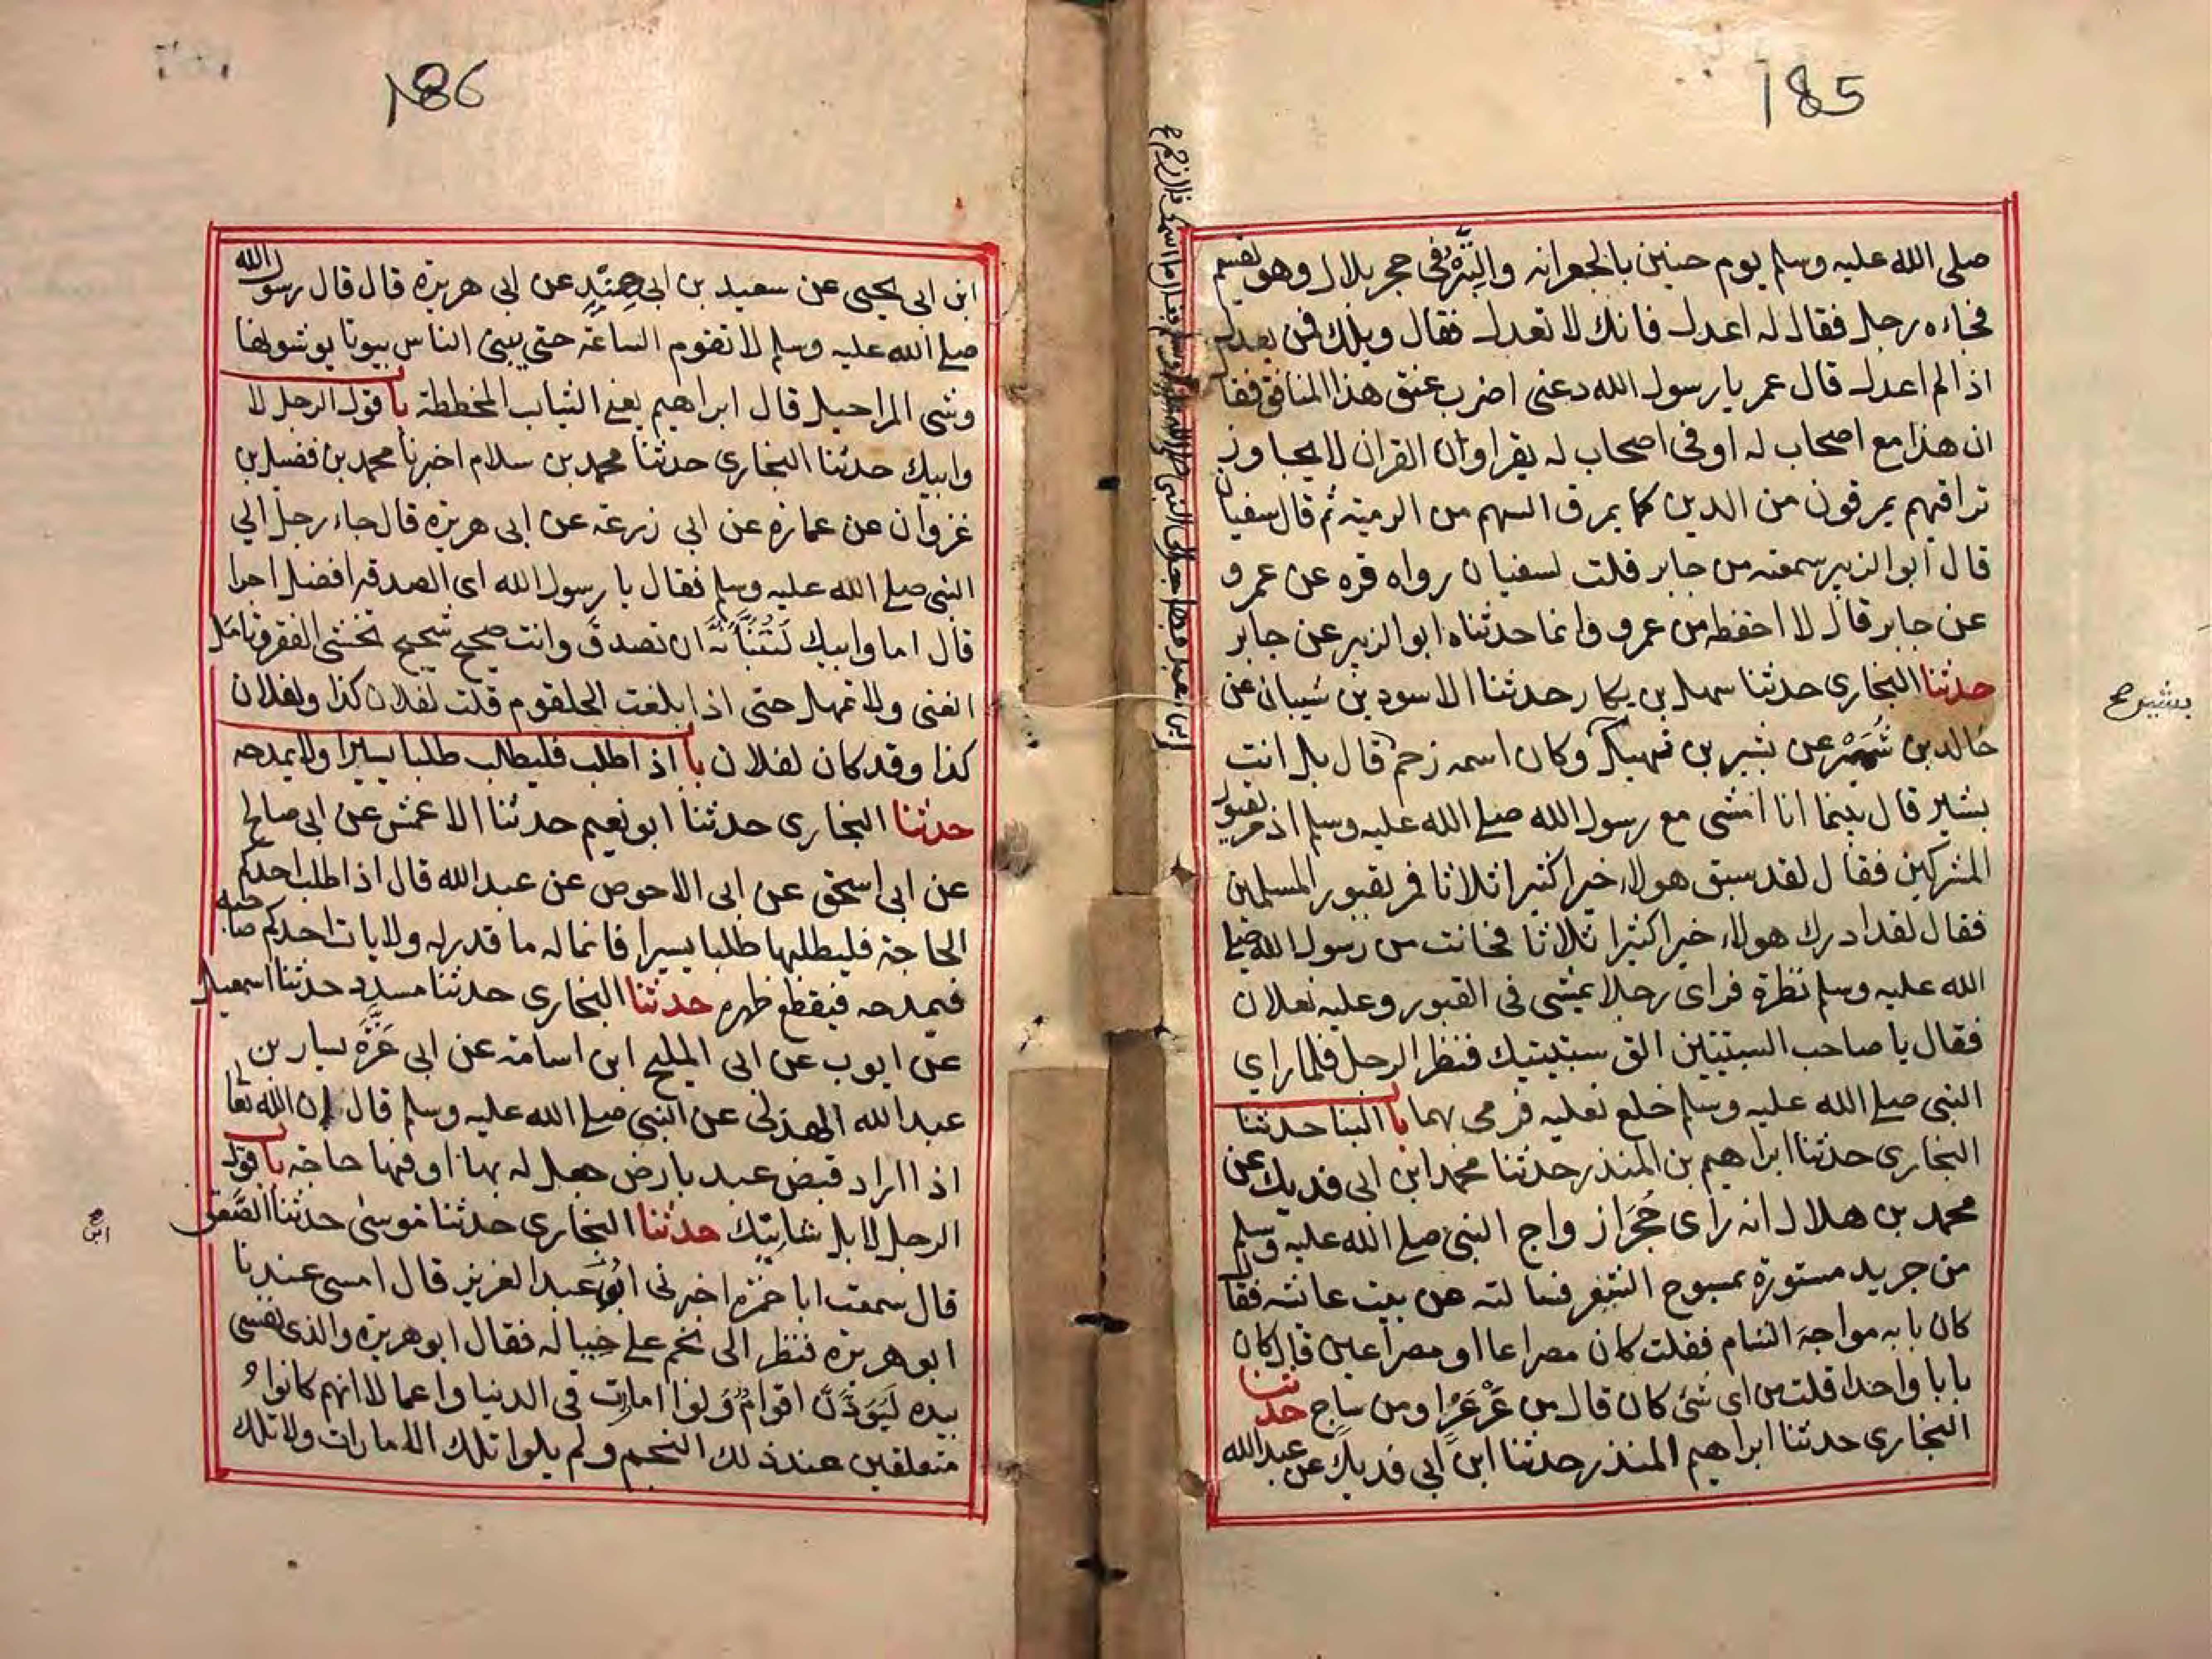 185
صلى الله عليه وسلم يوم حنين بالجعرانه والتبر فى حجر بلال وهو يقسم
فجاءه رجل فقال له اعدل فانك لا تعدل فقال ويلك فمن يعدل
اذا لم اعدل قال عمر يا رسول الله دعنى اضرب عنق هذا المنافق فقا
ان هذا مع اصحاب له او فى اصحاب له يقراون القران لا يجاوز
تراقيهم يمرقون من الدين كما يمرق السهم من الرمية ثم قال سفيان
قال ابو الزبير سمعته من جابر قلت لسفيان رواه قره عن عمرو
عن جابر قال لا احفظه من عمرو وانما حدثناه ابو الزبير عن جابر
حدثنا البخارى حدثنا سهل بن بكار حدثنا الاسود بن شيبان عن
خالد بن سُمَيْر عن بشير بن نهيك وكان اسمه زحم قال بل انت
بشير قال بينما انا امشى مع رسول الله صلى الله عليه وسلم اذ مر بقبور
المشركين فقال لقد سبق هولاء خيرا كثيرا ثلاثا فمر بقبور المسلمين
فقال لقد ادرك هولاء خيرا كثيرا ثلاثا فحانت من رسول الله صلى
الله عليه وسلم نظرة فراى رجلا يمشى فى القبور وعليه نعلان
فقال يا صاحب السبتيتين الق سبتيتيك فنظر الرجل فلما راى
النبى صلى الله عليه وسلم خلع نعليه فرمى بهما با البنا حدثنا
البخارى حدثنا ابراهيم بن المنذر حدثنا محمد ابن ابى فديك عن
محمد بن هلال انه راى حُجَر ازواج النبى صلى الله عليه وسلم
من جريد مستورة بمسوح الشعر فسالته عن بيت عائشه فقال
كان بابه مواجهَ الشام فقلت كان مصراعا او مصراعين قال كان
بابا واحدا قلت من اى شئ كان قال من عَرْعَرٍ او من ساج حدثنا
البخارى حدثنا ابراهيم المنذر حدثنا ابن ابى فديك عن عبد الله
186
ابن ابى يحيى عن سعيد بن ابى هِنْدٍ عن ابى هريرة قال قال رسول الله
صلى الله عليه وسلم لا تقوم الساعة حتى يبنى الناس بيوتا يوشونها
وشى المراحيل قال ابراهيم يعنى الثياب المخططة با قول الرجل لا
وابيك حدثنا البخارى حدثنا محمد بن سلام اخبرنا محمد بن فضيل بن
غزوان عن عمارة عن ابى زرعة عن ابى هريرة قال جاء رجل الى
النبى صلى الله عليه وسلم فقال يا رسول الله اى الصدقه افضل اجرا
قال اما وابيك لَتُنَبَّأَنَّهُ ان تصدق وانت صحيح شحيح تخشى الفقر وتامل
الغنى ولا تمهل حتى اذا بلغت الحلقوم قلت لفلان كذا ولفلان
كذا وقد كان لفلان با اذا طلب فليطلب طلبا يسيرا ولا يمدحه
حدثنا البخارى حدثنا ابو نعيم حدثنا الاعمش عن ابى صالح
عن ابى اسحق عن ابى الاحوص عن عبد الله قال اذا طلب احدكم
الحاجة فليطلبها طلبا يسيرا فانما له ما قدر له ولا يات احدكم صاحبه
فيمدحه فيقطع ظهره حدثنا البخارى حدثنا مسدد حدثنا اسمعيل
عن ايوب عن ابى المليح ابن اسامة عن ابى عَزَّةَ يسار بن
عبد الله الهذلى عن النبى صلى الله عليه وسلم قال إن الله تعا
اذا اراد قبض عبد بارض جعل له بها او فيها حاجة با قول
الرجل لا بل شانيك حدثنا البخارى حدثنا موسى حدثنا الصَّعق
قال سمعت ابا حمزه اخبرنى ابو عبد العزيز قال امسى عندنا
ابو هريره فنظر الى نجم على حياله فقال ابو هريرة والذى نفسى
بيده لَيَوَدَّنَّ اقوامٌ وَلوا امارت فى الدنيا واعمالا انهم كانوا
متعلقين عند ذلك النجم ولم يلوا تلك الامارات ولا تلك